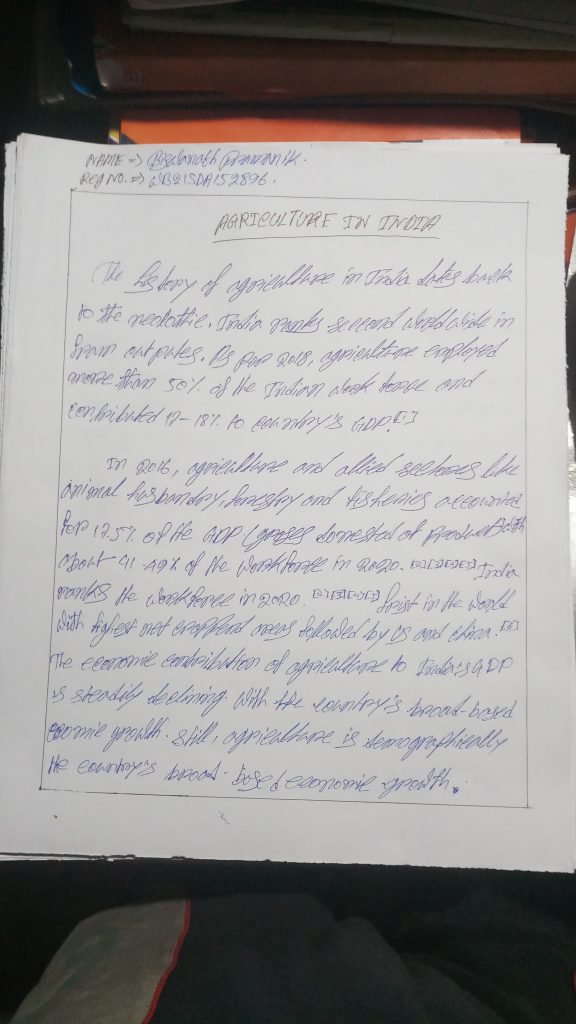 NAME => Biswanath Pramanik.
Reg NO. => WB21SDA152896.
AGRICULTURE IN INDIA
The history of agriculture in India dates back
to the neolothic. India ranks second world wide in
fram outputes. As per 2018, agriculture employed
more than 50% of the Indian work force and
contributed 17-18% to country's GDP.[1]
In 2016, agriculture and allied sectores like
animal husbandry, forestry and fisheries accounted
for 17.5% of the GDP (gross domested of product) with
about 41.49% of the workforce in 2020. [2][3][4][5] India
ranks the workforce in 2020. frist in the world
with highest net cropped areas followed by US and china. [6]
The economic contribution of agriculture to India's GDP
is steadily declining with the country's broad-based
economic growth. Still, agriculture is demographically
the country's broad-based economic growth.